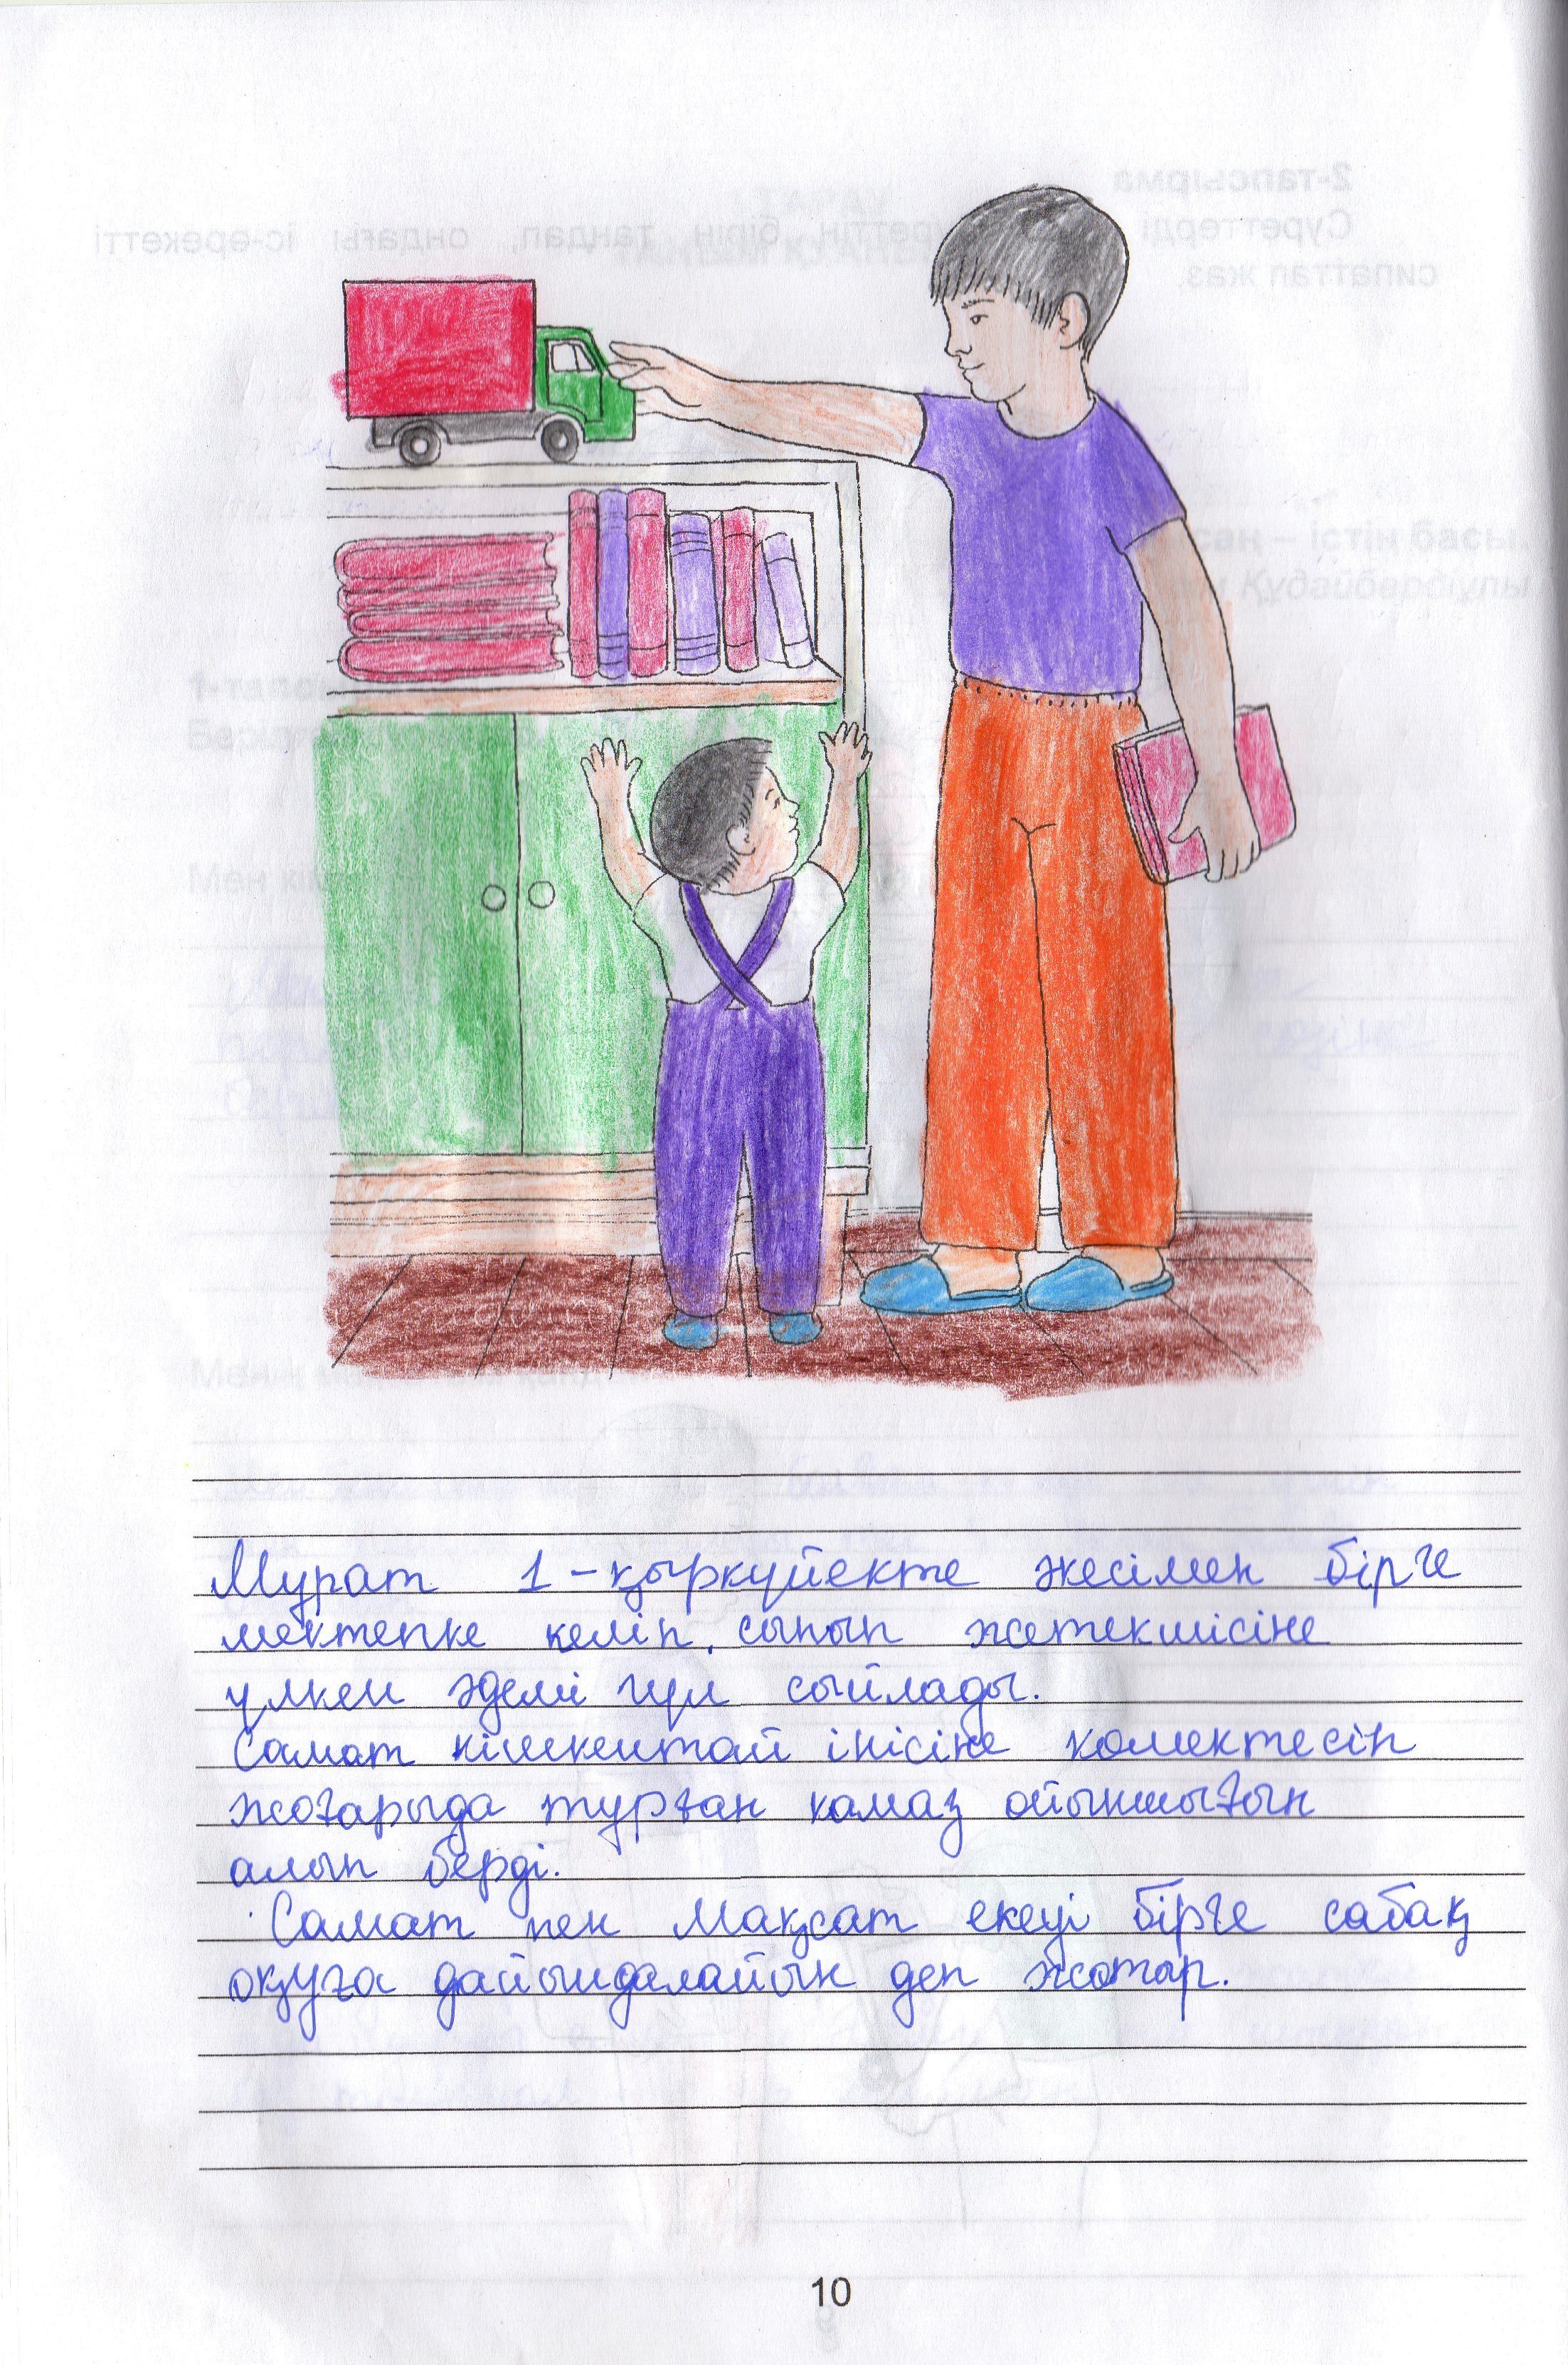 Мұрат 1-қыркүйекте әкесімен бірге
мектепке келіп, сынып жетекшісіне
үлкен әдемі гүл сыйлады.
Самат кішкентай інісіне көмектесіп
жоғарыда тұрған камаз ойыншығын
алып берді.
Самат пен Мақсат екеуі бірге сабақ
оқуға дайындалайық деп жатыр.
10